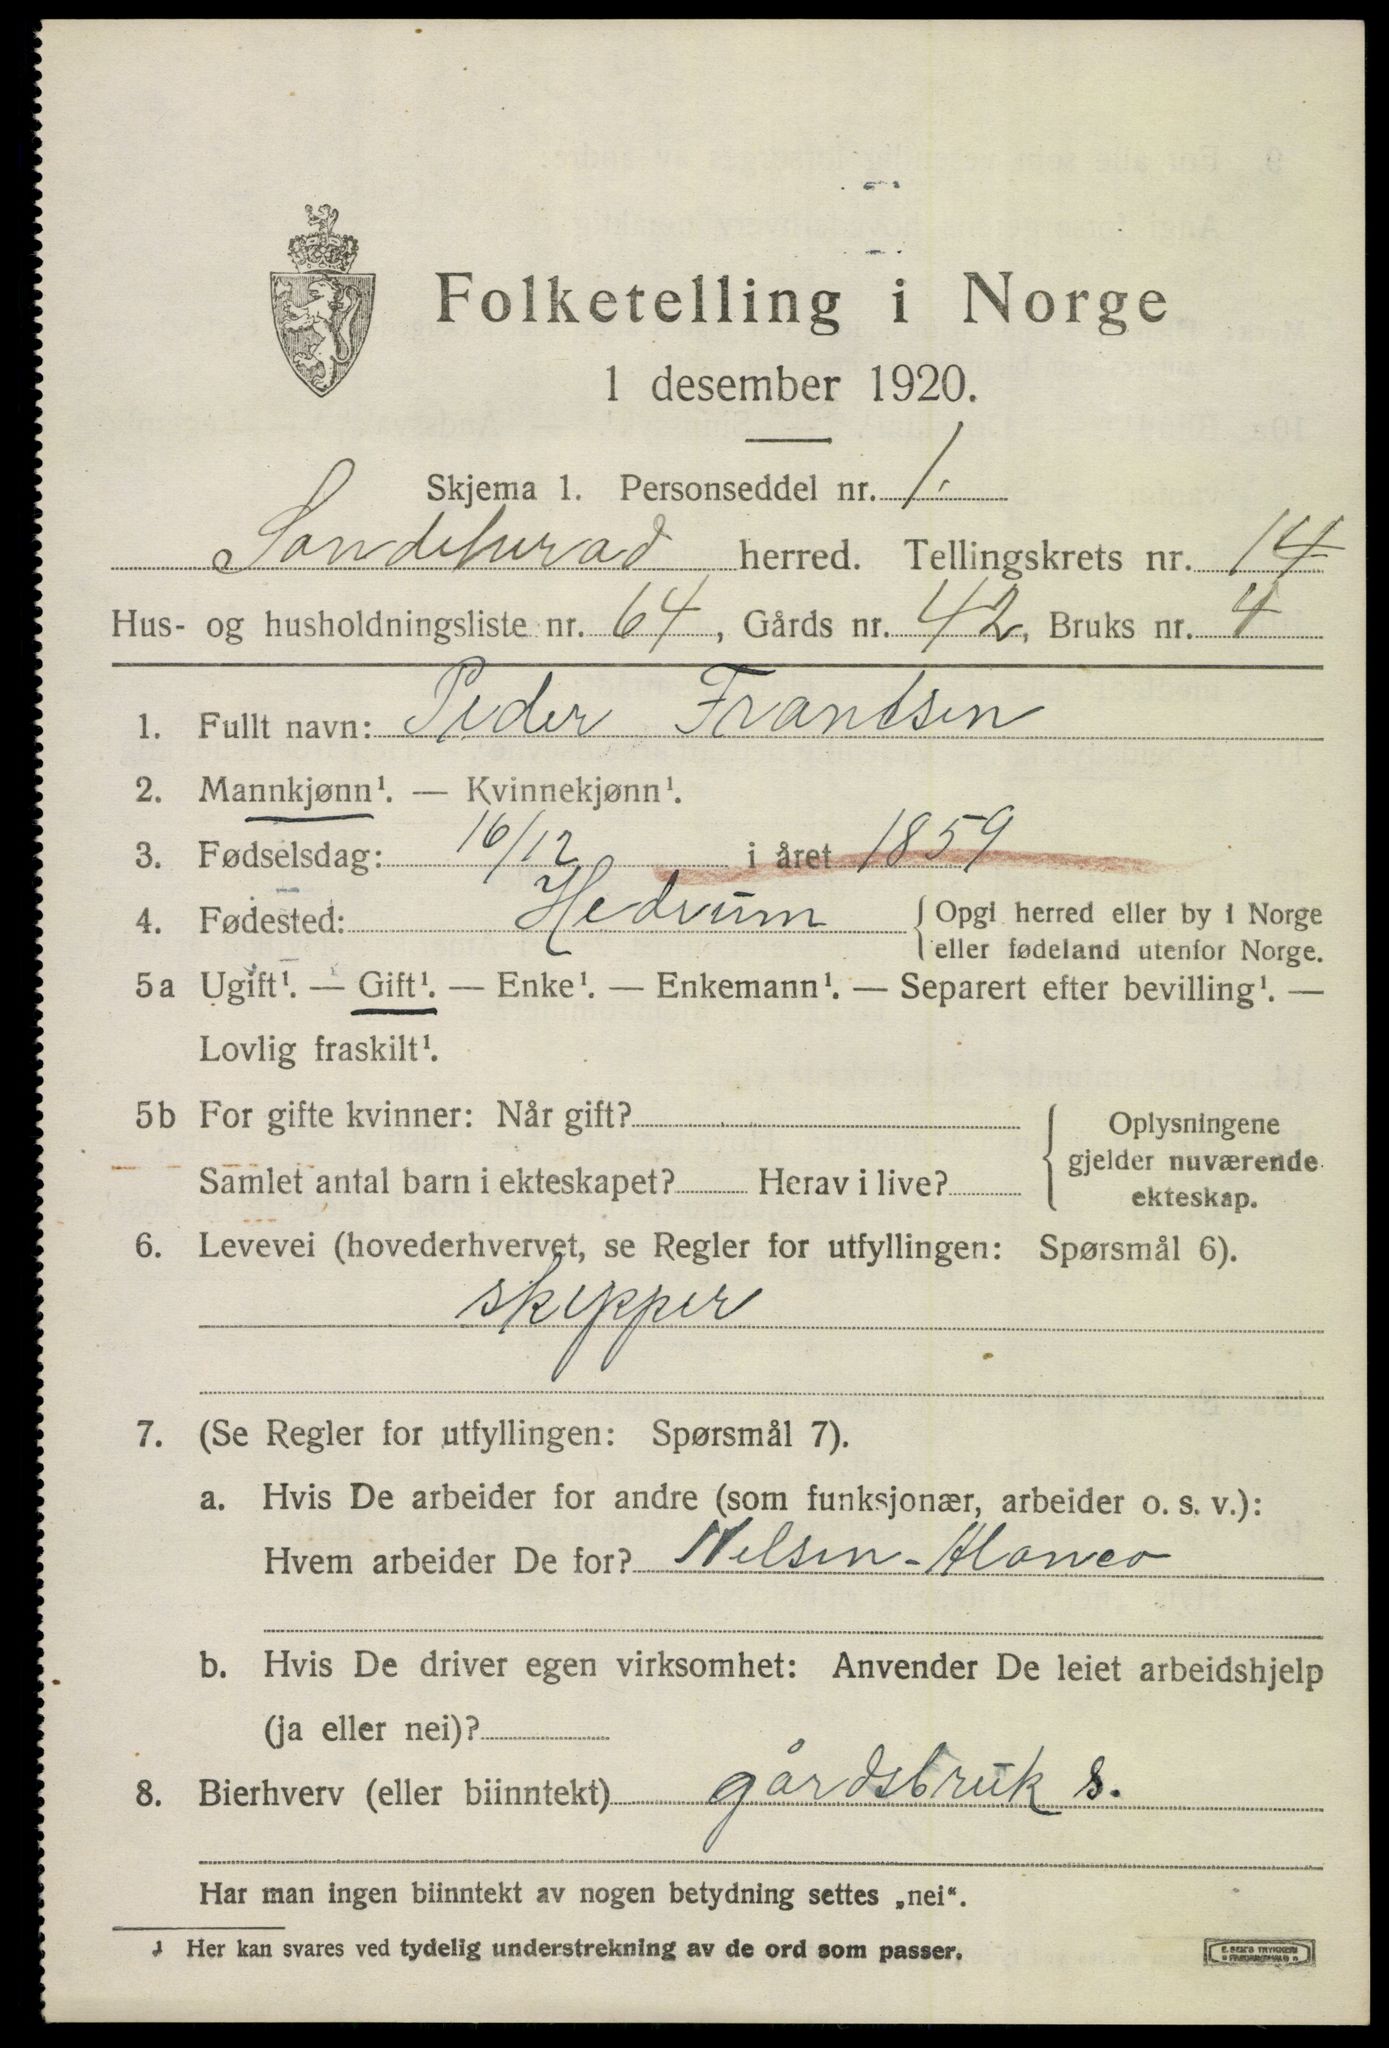 Folketelling i Norge
1 desember 1920.
Skjema 1. Personseddel nr. 1.
Sandeherad herred. Tellingskrets nr. 14
Hus- og husholdningsliste nr. 64, Gårds nr. 42, Bruks nr. 4
1. Fullt navn: Peder Frantsen
2. Mannkjønn¹. — Kvinnekjønn¹.
3. Fødselsdag: 16/12 i året 1859
4. Fødested: Hedrum { Opgi herred eller by i Norge
eller fødeland utenfor Norge.
5a Ugift¹. — Gift¹. — Enke¹. — Enkemann¹. — Separert efter bevilling¹. —
Lovlig fraskilt¹.
5b For gifte kvinner: Når gift?
Samlet antal barn i ekteskapet? Herav i live?
Oplysningene
gjelder nuværende
ekteskap.
6. Levevei (hovederhvervet, se Regler for utfyllingen: Spørsmål 6).
skipper
7. (Se Regler for utfyllingen: Spørsmål 7).
a. Hvis De arbeider for andre (som funksjonær, arbeider o. s. v.):
Hvem arbeider De for? Nilsen-Alonco
b. Hvis De driver egen virksomhet: Anvender De leiet arbeidshjelp
(ja eller nei)?
8. Bierhverv (eller biinntekt) gårdsbruk s.
Har man ingen biinntekt av nogen betydning settes „nei".
¹ Her kan svares ved tydelig understrekning av de ord som passer.